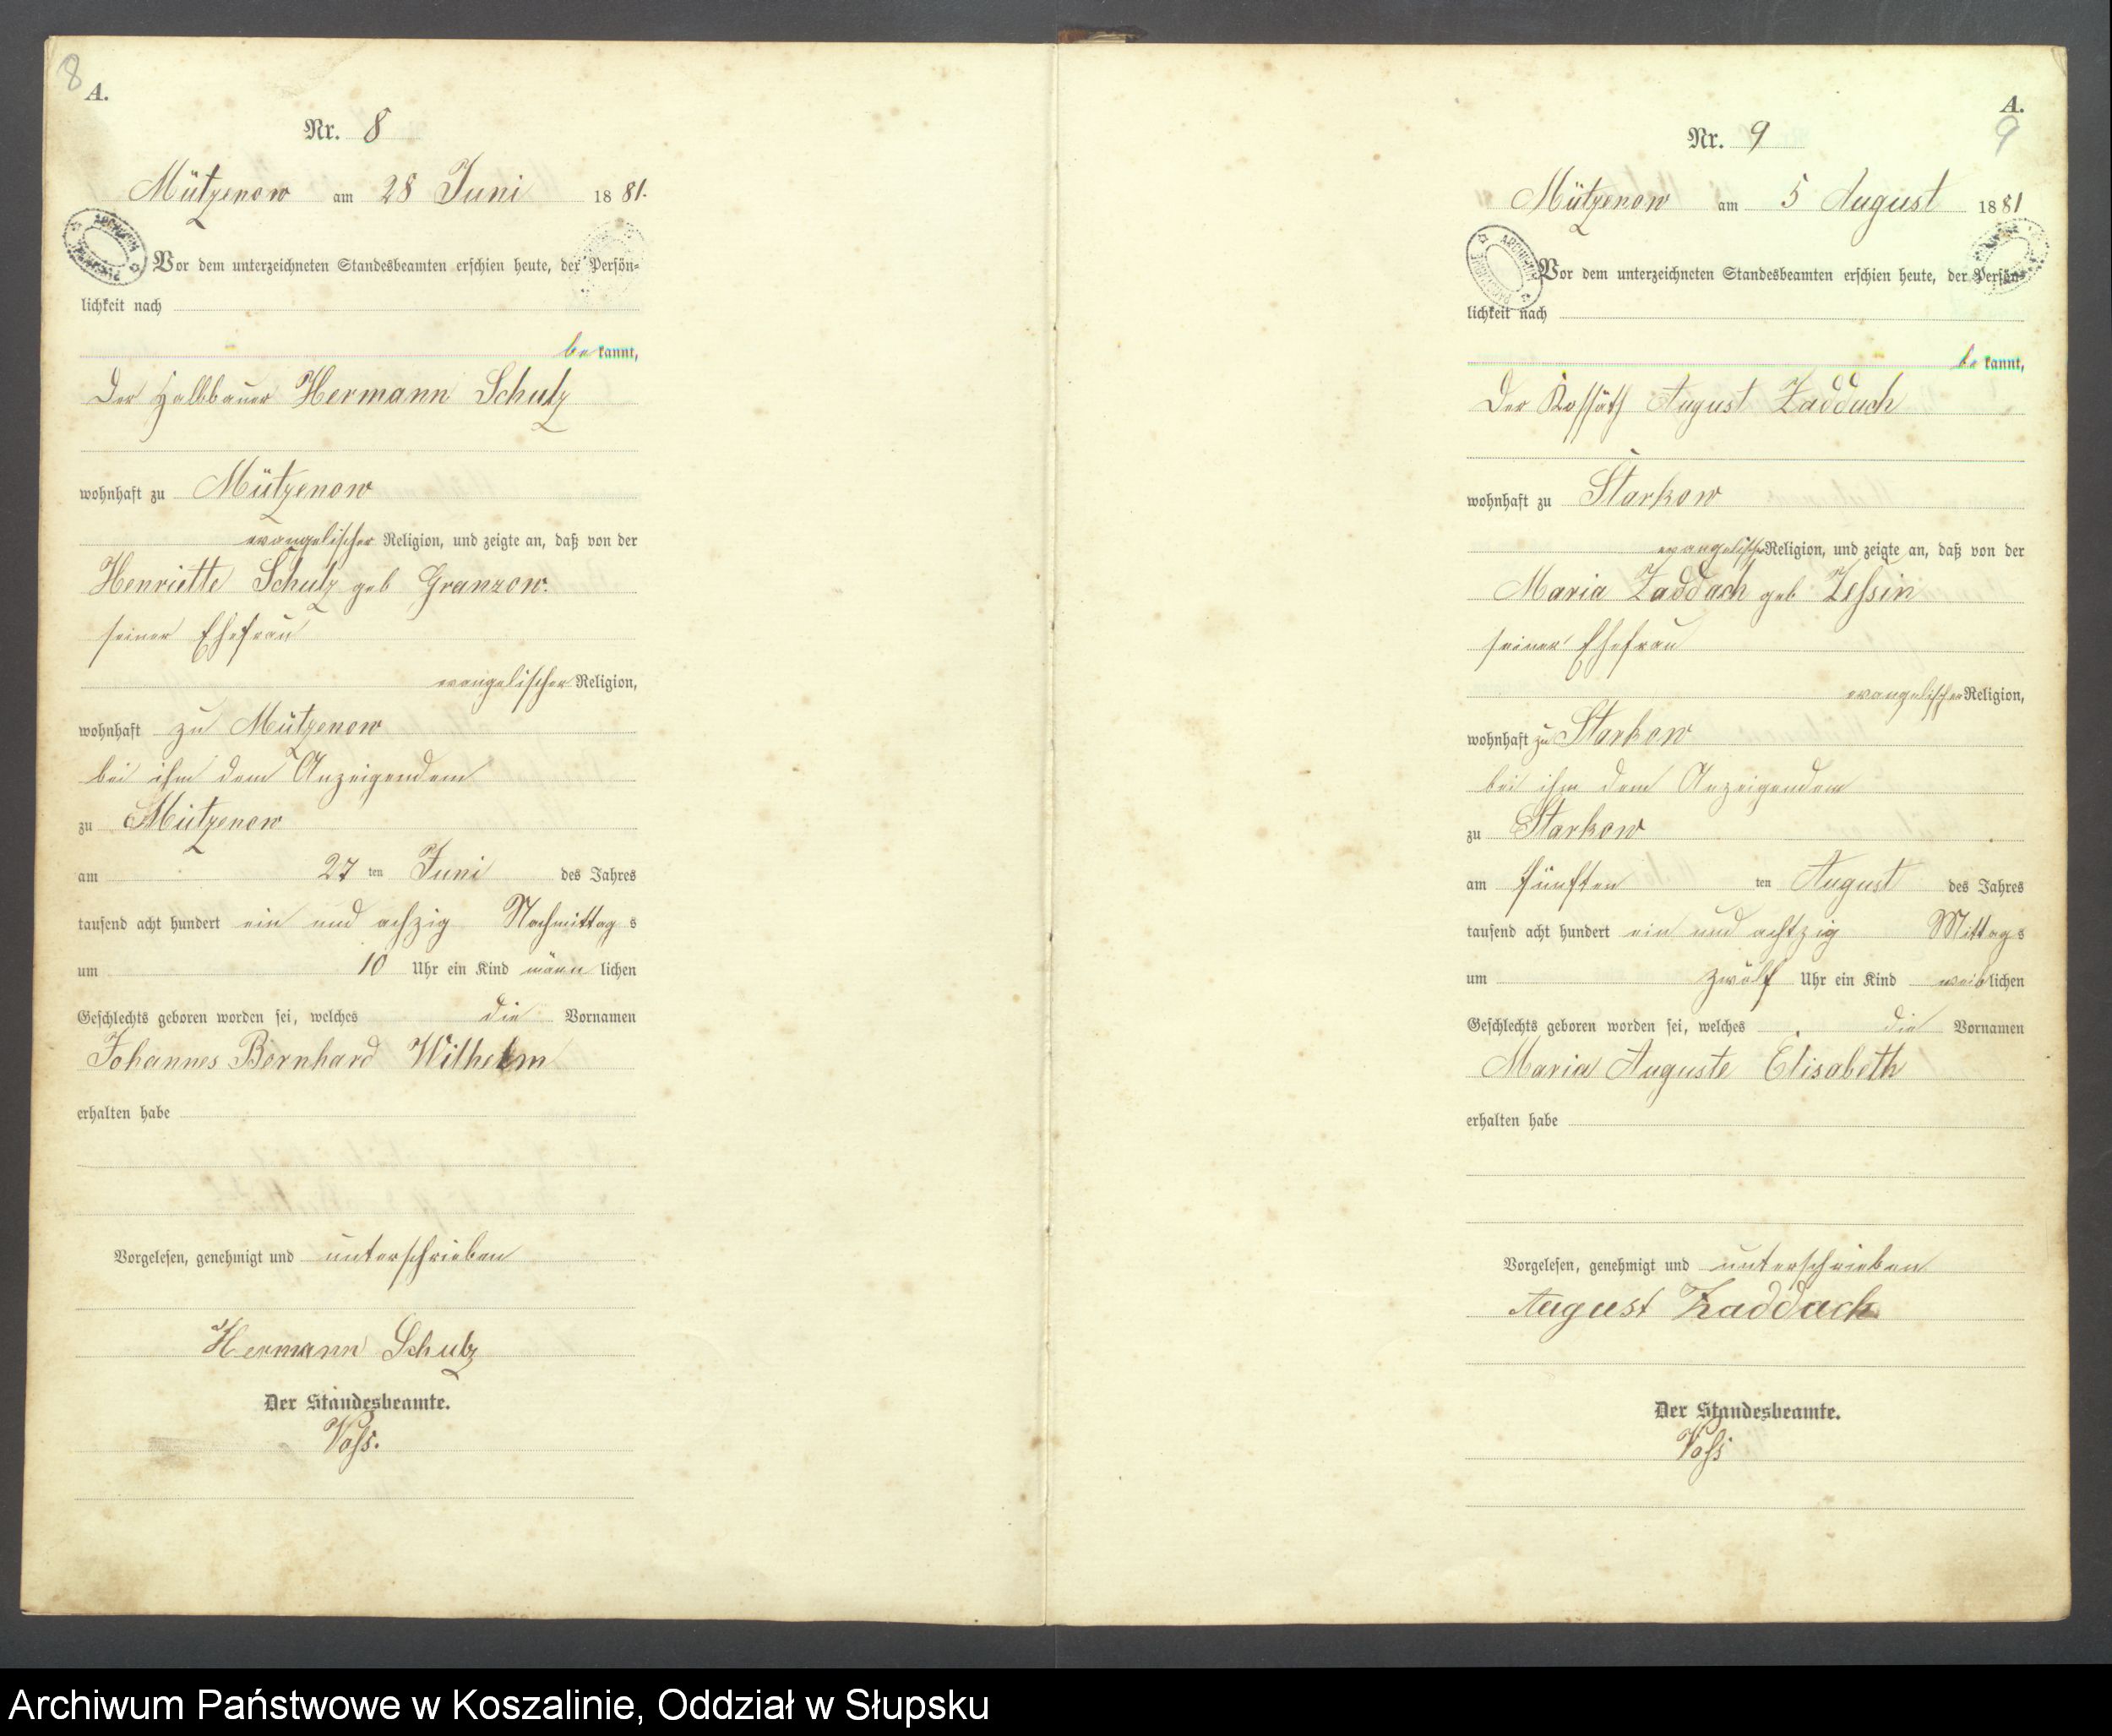 8
A.
Nr. 8
Mützenow am 28 Juni 1881.
Vor dem unterzeichneten Standesbeamten erschien heute, der Persön=
lichkeit nach
bekannt,
Der Halbbauer Hermann Schulz
wohnhaft zu Mützenow
evangelischer Religion, und zeigte an, daß von der
Henriette Schulz geb Granzow.
seiner Ehefrau
evangelischer Religion,
wohnhaft zu Mützenow
bei ihm dem Anzeigendem
zu Mützenow
am 27 ten Juni des Jahres
tausend acht hundert ein und achzig Nachmittags
um 10 Uhr ein Kind männlichen
Geschlechts geboren worden sei, welches die Vornamen
Johannes Bernhard Wilhelm
erhalten habe
Vorgelesen, genehmigt und unterschrieben
Hermann Schulz
Der Standesbeamte.
Voss.
A.
9
Nr. 9
Mützenow am 5 August 1881
Vor dem unterzeichneten Standesbeamten erschien heute, der Persön=
lichkeit nach
bekannt,
Der Kossäth August Zaddach
wohnhaft zu Starkow
evangelischer Religion, und zeigte an, daß von der
Maria Zaddach geb Zessin
seiner Ehefrau
evangelischer Religion,
wohnhaft zu Starkow
bei ihm dem Anzeigendem
zu Starkow
am fünften ten August des Jahres
tausend acht hundert ein und achtzig Mittags
um zwölf Uhr ein Kind weiblichen
Geschlechts geboren worden sei, welches die Vornamen
Maria Auguste Elisabeth
erhalten habe
Vorgelesen, genehmigt und unterschrieben
August Zaddack
Der Standesbeamte.
Voss
Archiwum Państwowe w Koszalinie, Oddział w Słupsku